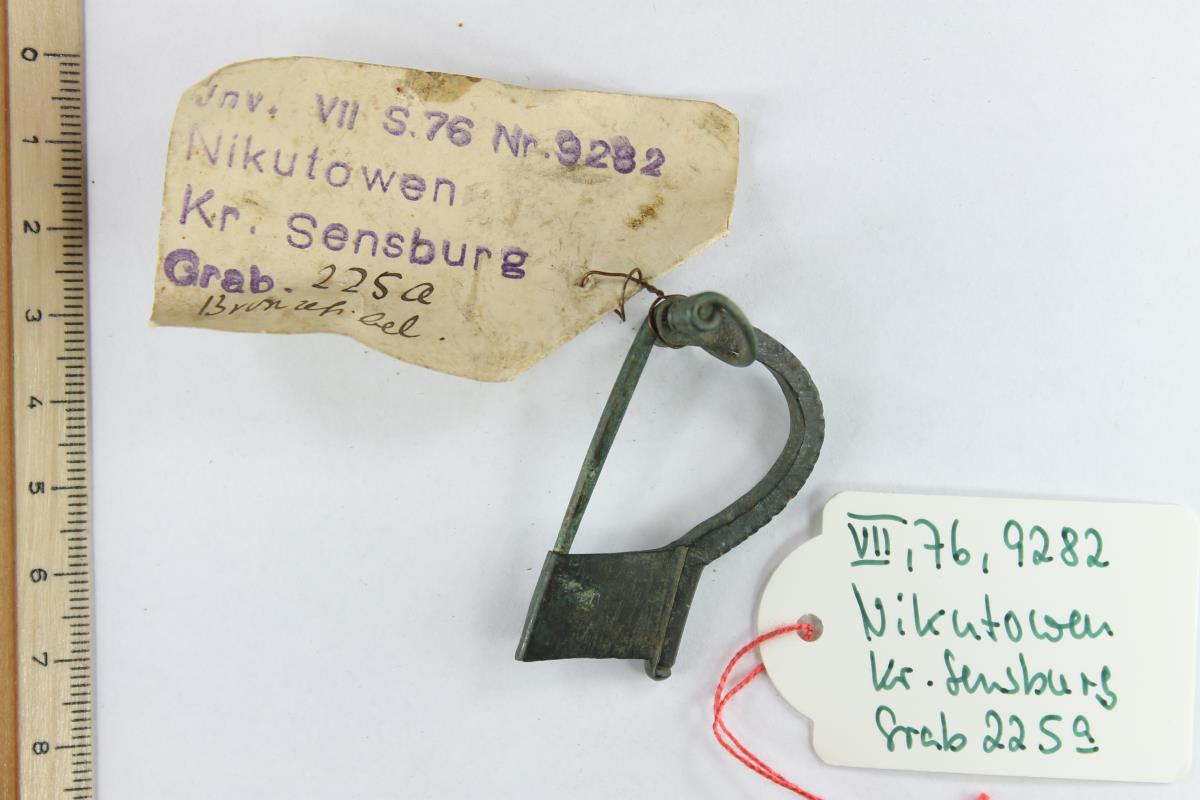 Jnv. VII S.76 Nr.9282
Nikutowen
Kr. Sensburg
Grab. 225a
Bronzefibel.
VII, 76, 9282
Nikutowen
Kr. Sensburg
Grab 225a
0
1
2
3
4
5
6
7
8